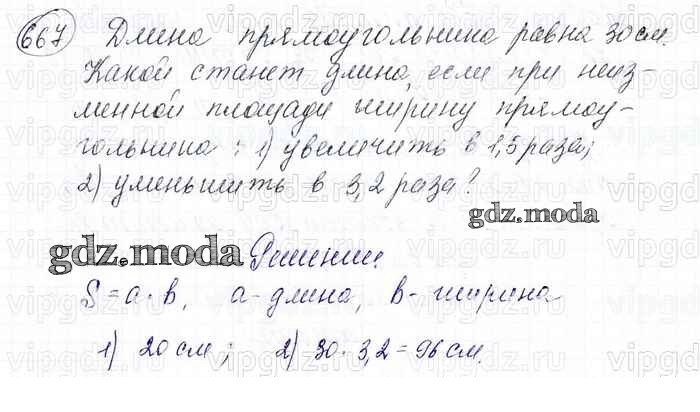 667 Длина прямоугольника равна 30 см.
Какой станет длина, если при неиз-
менной площади ширину прямоу-
гольника : 1) увеличить в 1,5 раза;
2) уменьшить в 3,2 раза?
gdz.moda
gdz.moda Решение.
S = a · b, a - длина, b - ширина
1) 20 см ; 2) 30 · 3,2 = 96 см.